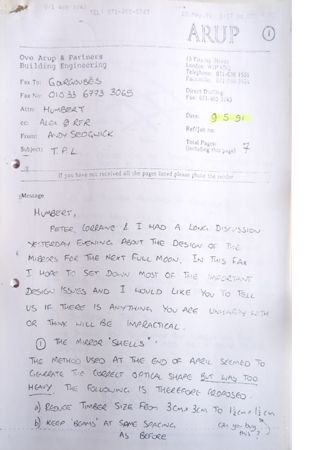 ARUP
1
Ove Arup & Partners
Building Engineering
13 Fitzroy Street
London W1P 6BQ
Telephone: 071-636 1531
Fax To: GOURGOUBÈS
Fax No: 010 33 6773 3065
Direct Dialling
Attn: HUMBERT
cc: ALEX @ RFR
Date: 9 5 91
From: ANDY SEDGWICK
Ref/Job no:
Subject: T.P.L.
Total Pages: 7
(including this page)
If you have not received all the pages listed please phone the sender
Message
HUMBERT,
PETER, & I HAD A LONG DISCUSSION
YESTERDAY EVENING ABOUT THE DESIGN OF THE
MIRRORS FOR THE NEXT FULL MOON. IN THIS FAX
I HOPE TO SET DOWN MOST OF THE IMPORTANT
DESIGN ISSUES AND I WOULD LIKE YOU TO TELL
US IF THERE IS ANYTHING YOU ARE UNHAPPY WITH
OR THINK WILL BE IMPRACTICAL.
1 THE MIRROR "SHELLS".
THE METHOD USED AT THE END OF APRIL SEEMED TO
GENERATE THE CORRECT OPTICAL SHAPE BUT WAS TOO
HEAVY. THE FOLLOWING IS THEREFORE PROPOSED.
a) REDUCE TIMBER SIZE FROM 3cm x 3cm TO 1½cm x 1½cm
b) KEEP 'BEAMS' AT SAME SPACING
AS BEFORE
(can you buy this?)